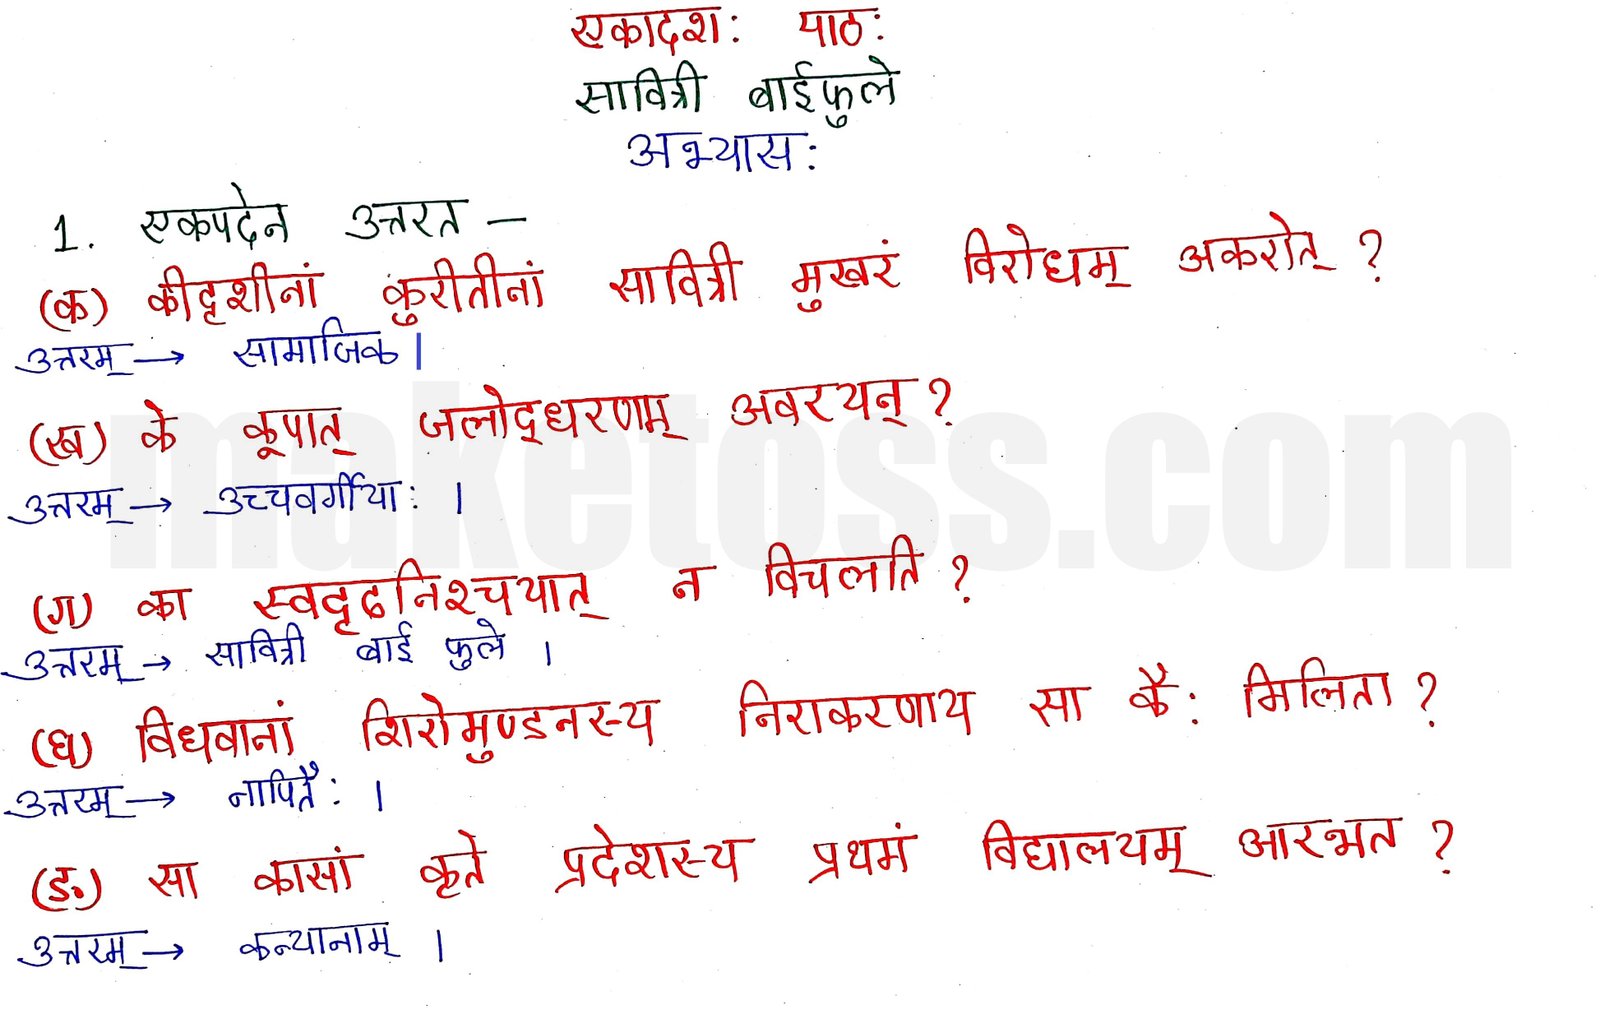 एकादशः पाठः
सावित्री बाईफुले
अभ्यासः
1. एकपदेन उत्तरत –
(क) कीदृशीनां कुरीतीनां सावित्री मुखरं विरोधम् अकरोत् ?
उत्तरम् → सामाजिक |
(ख) के कूपात् जलोद्धरणम् अवरयन् ?
उत्तरम् → उच्चवर्गीयाः ।
(ग) का स्वदृढनिश्चयात् न विचलति ?
उत्तरम् → सावित्री बाई फुले ।
(घ) विधवानां शिरोमुण्डनस्य निराकरणाय सा कैः मिलिता ?
उत्तरम् → नापितैः ।
(ङ) सा कासां कृते प्रदेशस्य प्रथमं विद्यालयम् आरभत ?
उत्तरम् → कन्यानाम् ।
maketoss.com